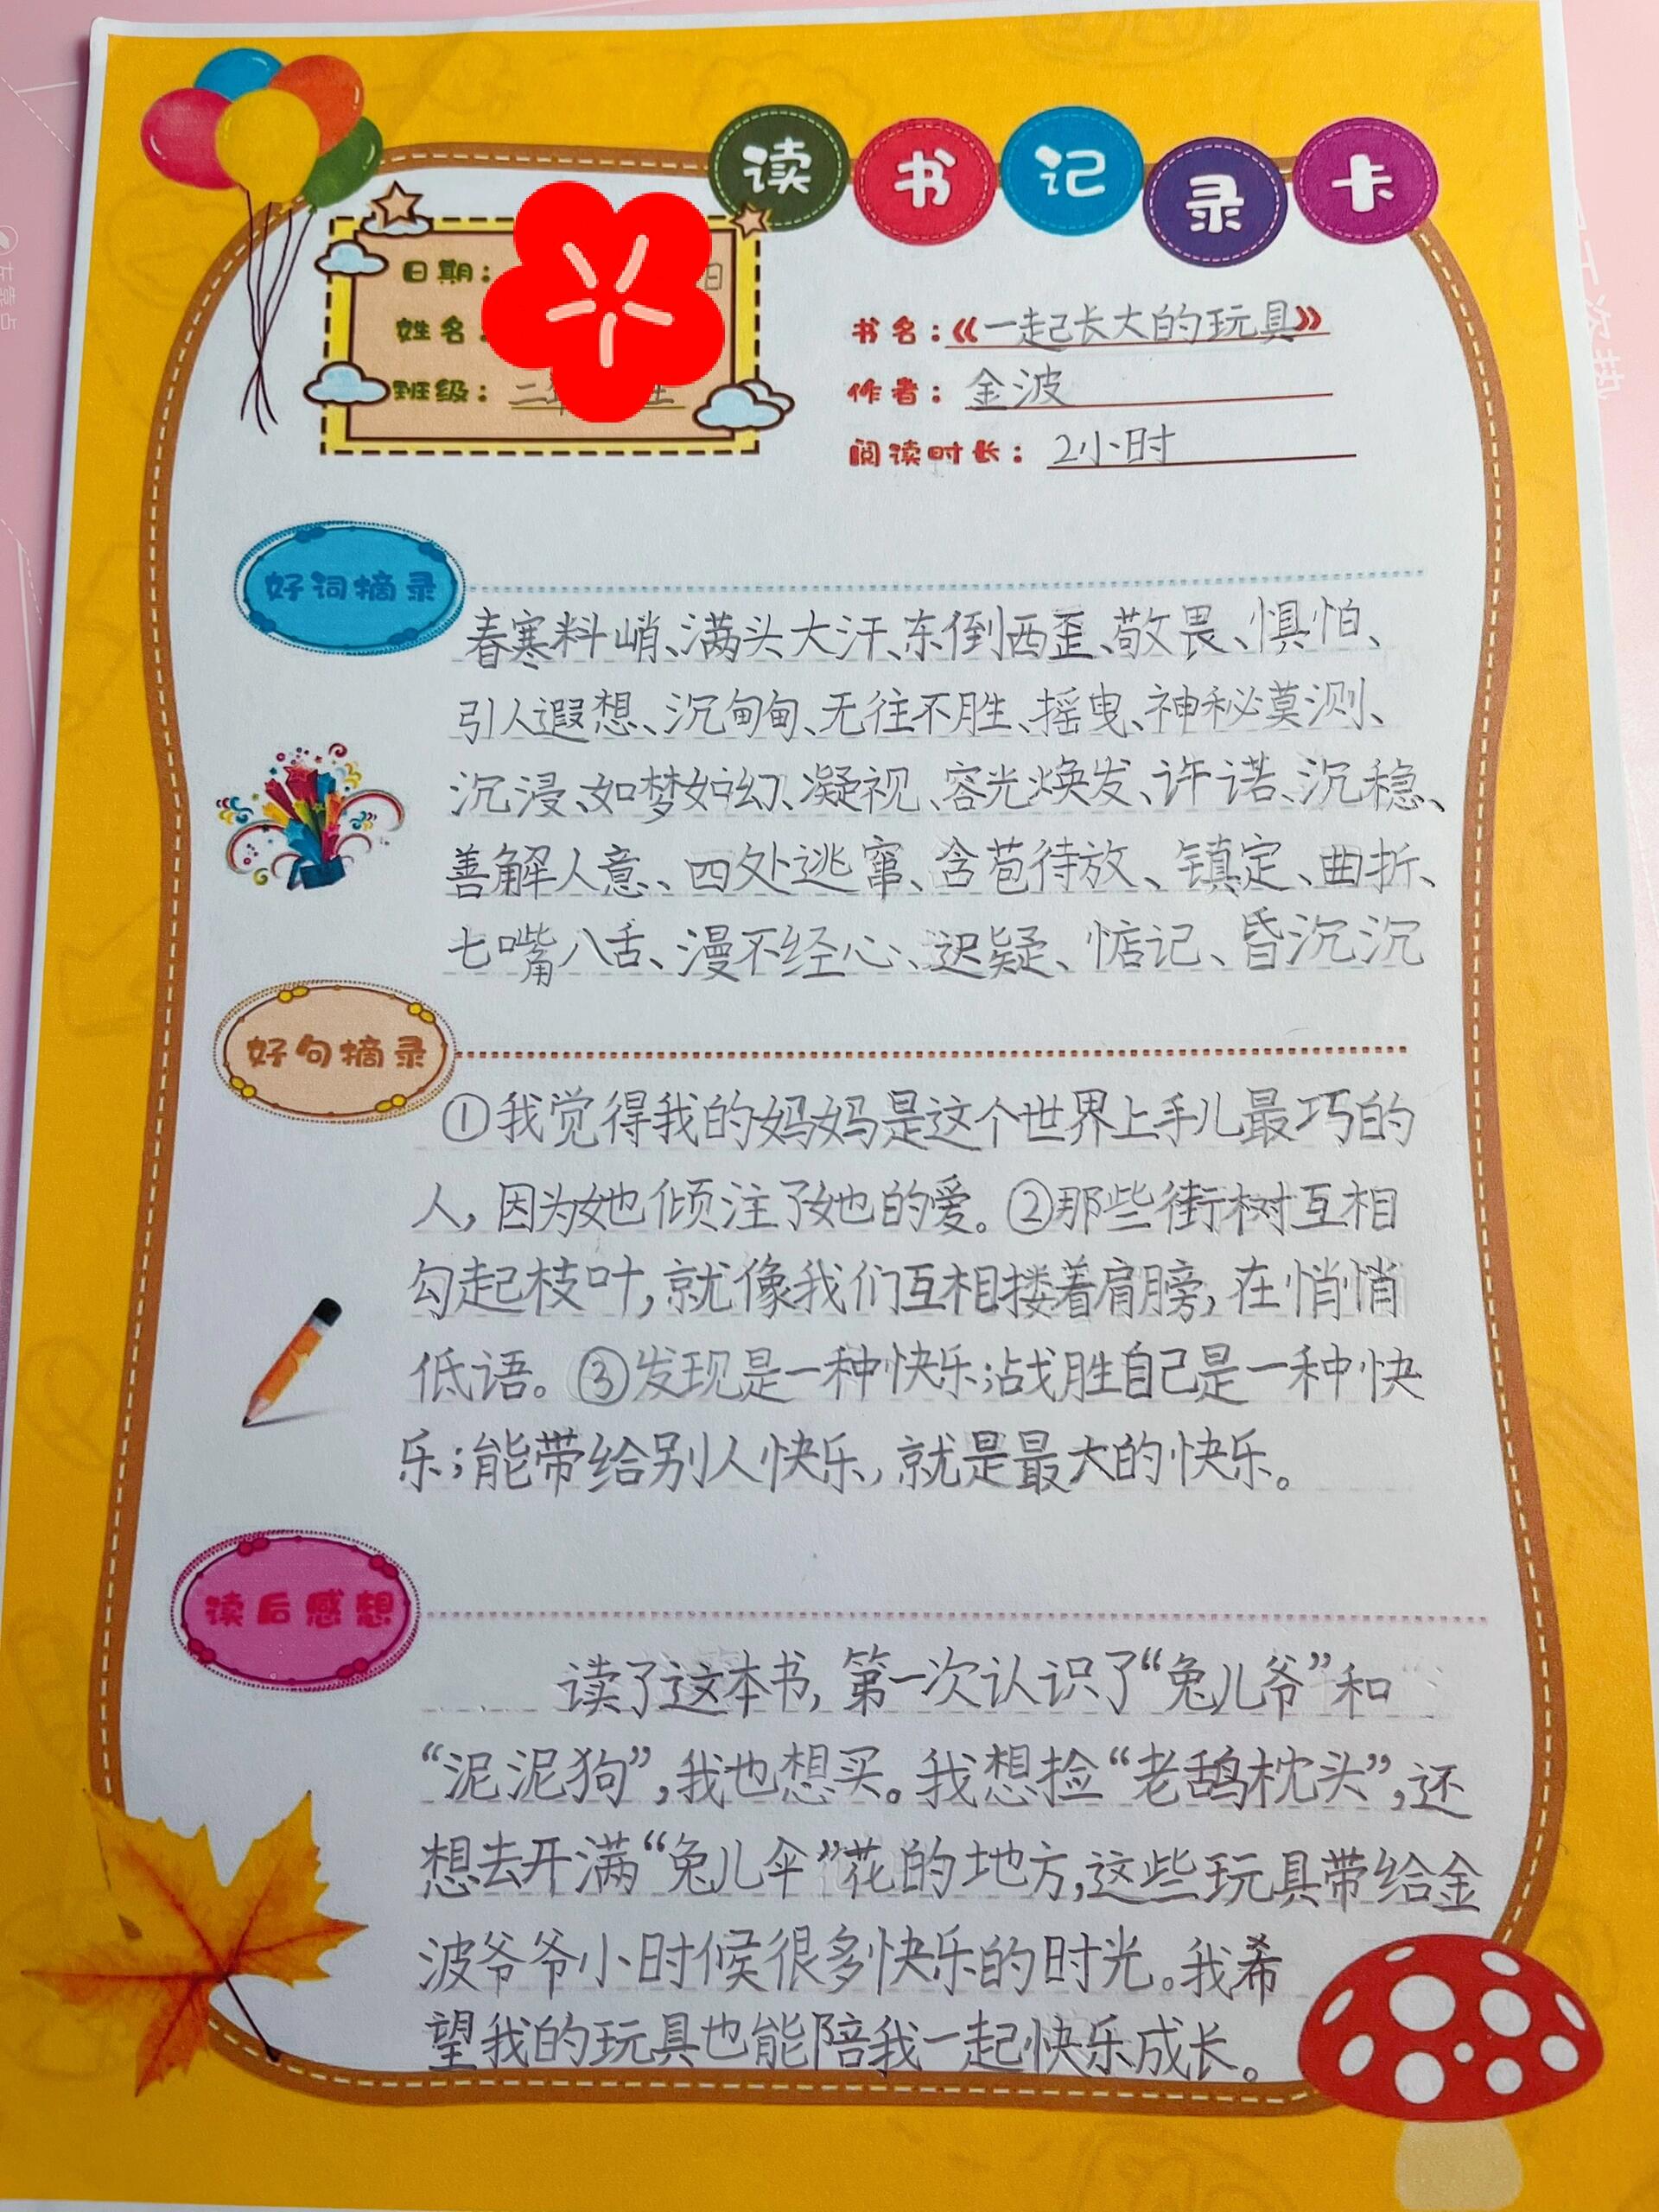 读书记录卡
日期： 日
姓名：
班级：二年 班
书名：《一起长大的玩具》
作者：金波
阅读时长：2小时
好词摘录
春寒料峭、满头大汗、东倒西歪、敬畏、惧怕、
引人遐想、沉甸甸、无往不胜、摇曳、神秘莫测、
沉浸、如梦如幻、凝视、容光焕发、许诺、沉稳、
善解人意、四处逃窜、含苞待放、镇定、曲折、
七嘴八舌、漫不经心、迟疑、惦记、昏沉沉
好句摘录
①我觉得我的妈妈是这个世界上手儿最巧的
人，因为她倾注了她的爱。②那些街树互相
勾起枝叶，就像我们互相搂着肩膀，在悄悄
低语。③发现是一种快乐；战胜自己是一种快
乐；能带给别人快乐，就是最大的快乐。
读后感想
读了这本书，第一次认识了“兔儿爷”和
“泥泥狗”，我也想买。我想捡“老鸹枕头”，还
想去开满“兔儿伞”花的地方，这些玩具带给金
波爷爷小时候很多快乐的时光。我希
望我的玩具也能陪我一起快乐成长。